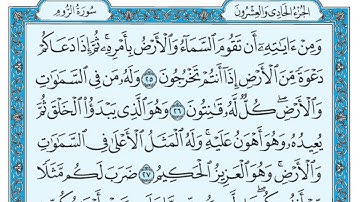 الجزء الحادي والعشرون
سورة الروم
وَمِنْ ءَايَـٰتِهِۦٓ أَن تَقُومَ ٱلسَّمَآءُ وَٱلْأَرْضُ بِأَمْرِهِۦ ۚ ثُمَّ إِذَا دَعَاكُمْ
دَعْوَةً مِّنَ ٱلْأَرْضِ إِذَآ أَنتُمْ تَخْرُجُونَ ٢٥ وَلَهُۥ مَن فِى ٱلسَّمَـٰوَٰتِ
وَٱلْأَرْضِ ۖ كُلٌّ لَّهُۥ قَـٰنِتُونَ ٢٦ وَهُوَ ٱلَّذِى يَبْدَؤُا۟ ٱلْخَلْقَ ثُمَّ
يُعِيدُهُۥ وَهُوَ أَهْوَنُ عَلَيْهِ ۚ وَلَهُ ٱلْمَثَلُ ٱلْأَعْلَىٰ فِى ٱلسَّمَـٰوَٰتِ
وَٱلْأَرْضِ ۚ وَهُوَ ٱلْعَزِيزُ ٱلْحَكِيمُ ٢٧ ضَرَبَ لَكُم مَّثَلًا